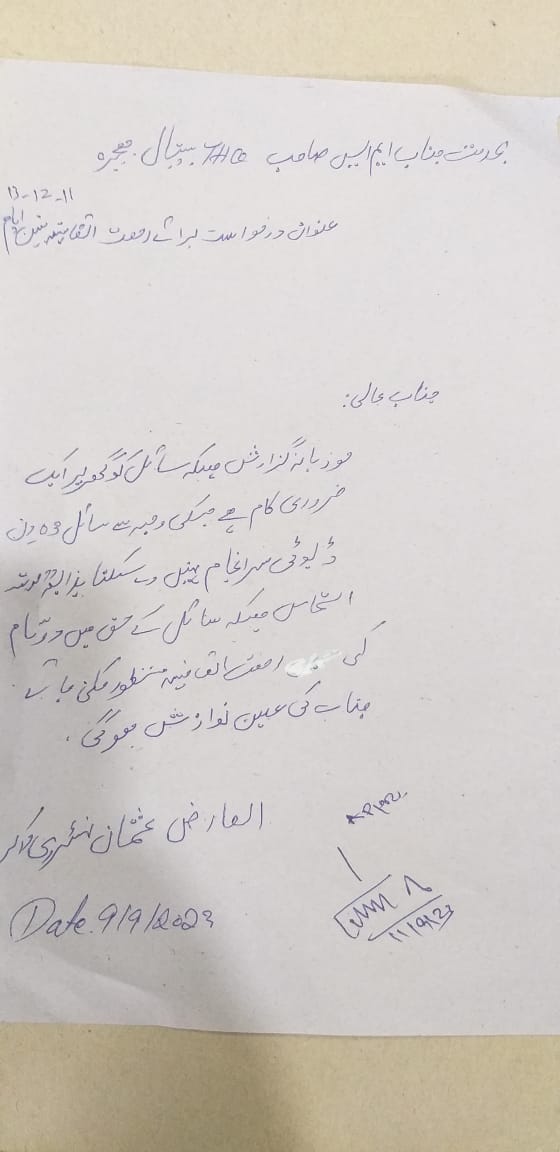 بخدمت جناب ایم ایس صاحب THQ ہسپتال حجرہ
11-12-13
عنوان درخواست برائے رخصت اتفاقیہ تین ایام
جناب عالی:
موزبانہ گزارش ہیکہ سائل کو گھر پر ایک
ضروری کام ہے جسکی وجہ سے سائل 03 دن
ڈیوٹی سرانجام نہیں دے سکتا
التماس ہیکہ سائل کے حق میں
کی رخصت اتفاقیہ منظور کی جائے
جناب کی عین نوازش ہوگی۔
العارض عثمان سینٹری ورکر
Date. 9/9/2023
11/9/23